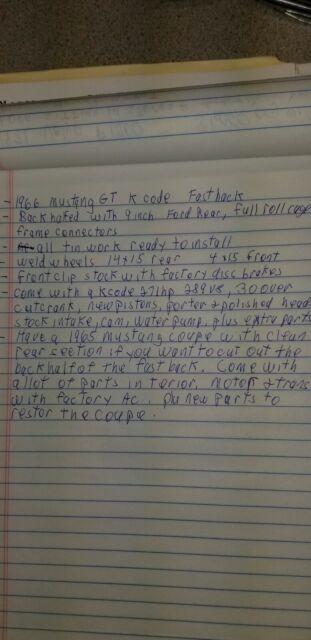 - 1966 mustang GT K code Fastback
- Back halfed with 9inch Ford Rear, full roll cage
frame connectors
- all tin work ready to install
- weld wheels 14x15 rear 4x15 front
- front clip stock with factory disc brakes
- come with a Kcode 271hp 289V8, 30 over
cut crank, new pistons, porter & polished head
stock intake, cam, water pump, plus extra parts
- Have a 1965 mustang coupe with clean
rear section if you want to cut out the
back half of the fast back. Come with
allot of parts interior, motor & trans
with factory AC. plus new parts to
restor the coupe.